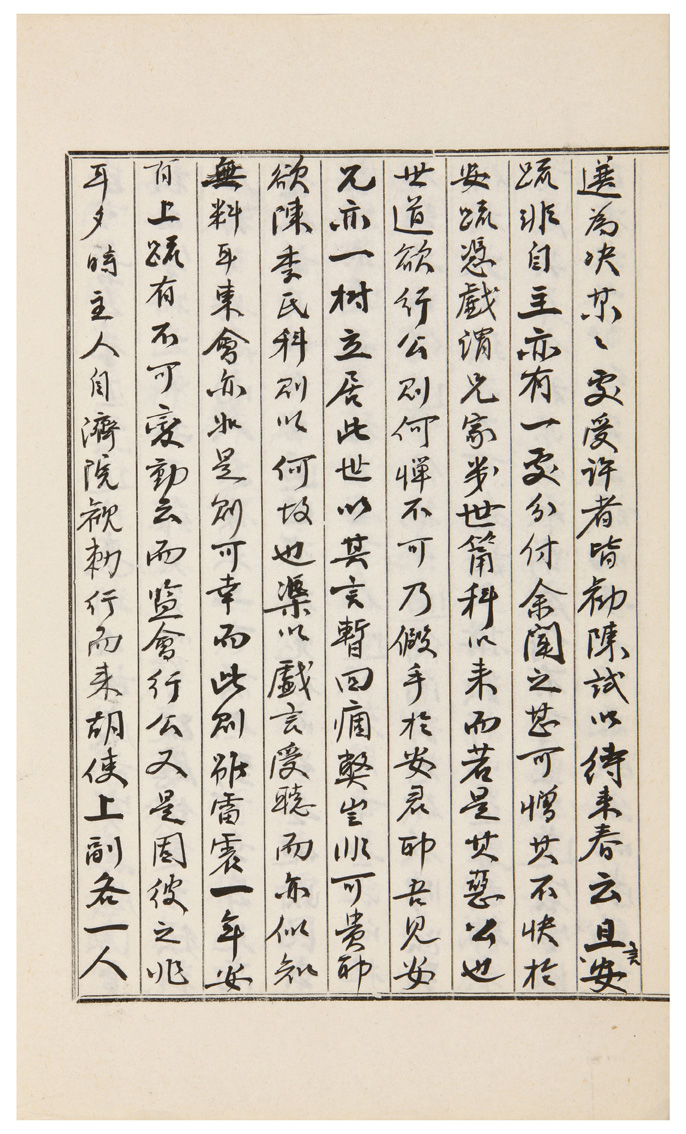 選為决某〻處受許者皆勸陳試以待来春云且言安
疏非自主亦有一處分付余聞之甚可憎其不快於
安疏憑戲謂兄家弟世篤科以来而若是其惡公也
世道欲行公則何憚不可乃假手於安君耶吾見安
兄亦一樹立居此世以其言暫回痼弊豈非可貴耶
欲陳季氏科則以何故也渠以戲言受聽而亦似知
無料耳東會亦如是則可幸而此則雖雷震一年安
有上疏有不可變動云而監會行公又是因彼之非
耳夕時主人自濟院觀勅行而来胡使上副各一人